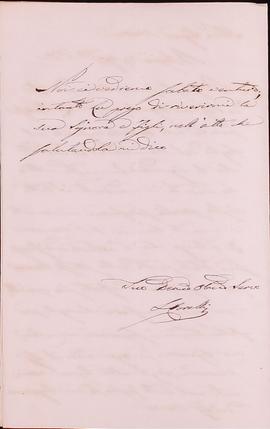 Noi ci vedremo sabato venturo,
intanto La prego di riverirmi la
sua Signora e figli, nell'atto che
salutandola mi dico
Suo Devmo Obbmo Servo